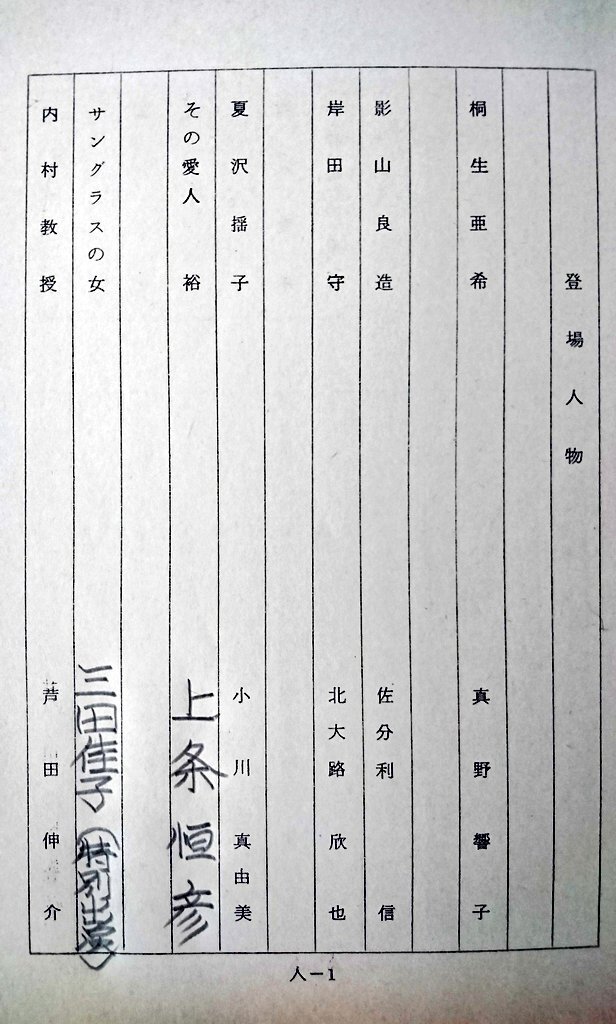 登場人物
桐生亜希 真野響子
影山良造 佐分利信
岸田守 北大路欣也
夏沢揺子 小川真由美
その愛人 裕 上条恒彦
サングラスの女 三田佳子(特別出演)
内村教授 芦田伸介
人－1